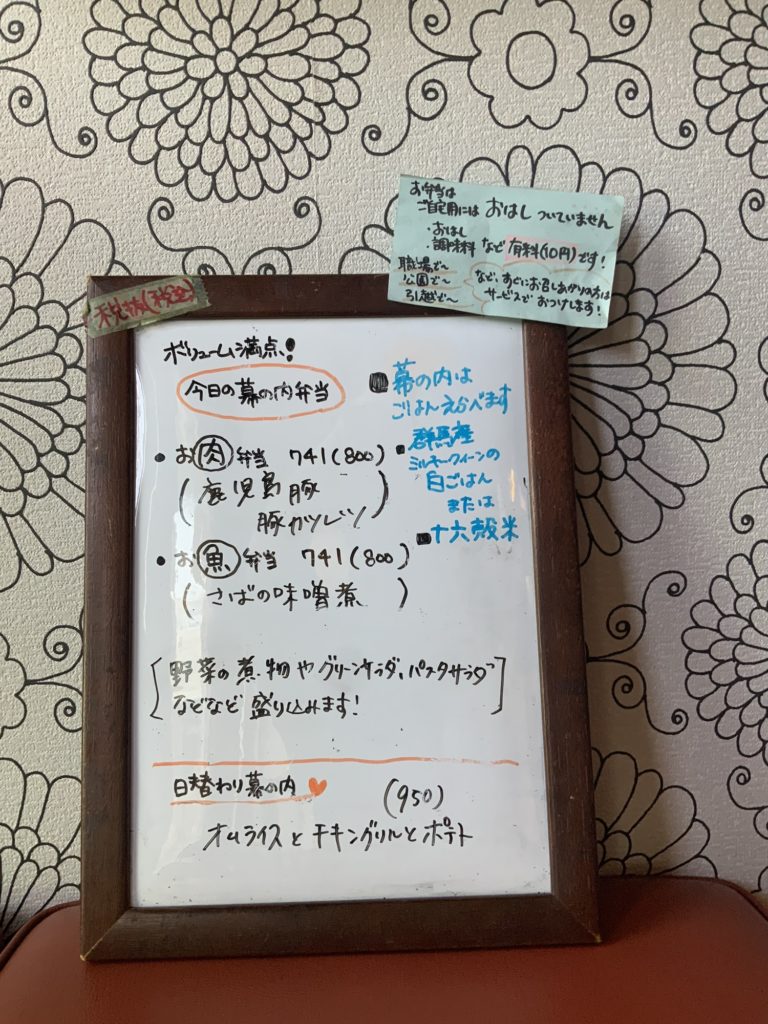 お弁当は
ご自宅用には おはし ついていません
・おはし
・調味料 など 有料(10円)です!
職場で〜
公園で〜 など、すぐにお召しあがりの方は
引越で〜 サービスで おつけします!
税抜(税込)
ボリューム満点!
今日の幕の内弁当
・お肉弁当 741(800)
(鹿児島豚
豚カツレツ)
・お魚弁当 741(800)
(さばの味噌煮)
■幕の内は
ごはんえらべます
■群馬産
ミルキークィーンの
白ごはん
または
■十六穀米
[野菜の煮物やグリーンサラダ、パスタサラダ
などなど盛り込みます!]
日替わり幕の内♥ (950)
オムライスとチキングリルとポテト